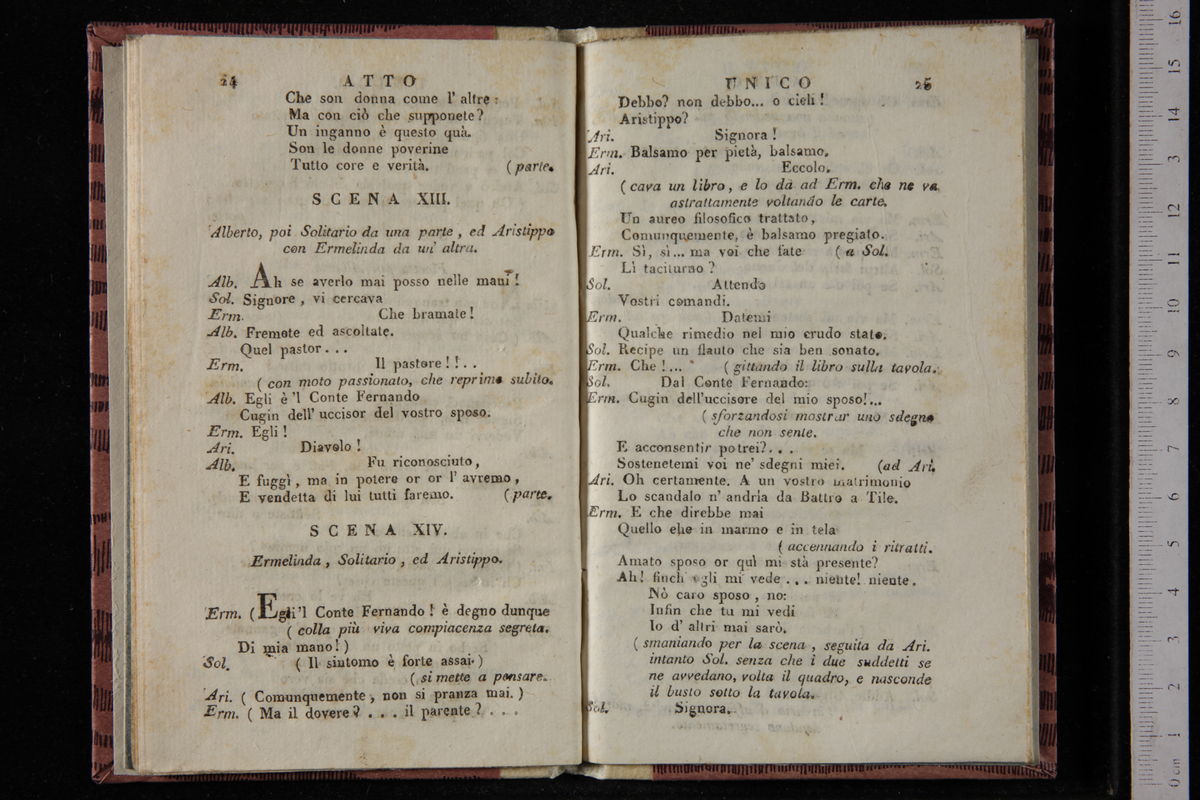 24 ATTO
Che son donna come l' altre:
Ma con ciò che supponete?
Un inganno è questo quà.
Son le donne poverine
Tutto core e verità. (parte.
SCENA XIII.
Alberto, poi Solitario da una parte, ed Aristippo
con Ermelinda da un' altra.
Alb. Ah se averlo mai posso nelle mani!
Sol. Signore, vi cercava
Erm. Che bramate!
Alb. Fremete ed ascoltate.
Quel pastor...
Erm. Il pastore!!..
(con moto passionato, che reprime subito.
Alb. Egli è 'l Conte Fernando
Cugin dell' uccisor del vostro sposo.
Erm. Egli!
Ari. Diavolo!
Alb. Fu riconosciuto,
E fuggì, ma in potere or or l' avremo,
E vendetta di lui tutti faremo. (parte.
SCENA XIV.
Ermelinda, Solitario, ed Aristippo.
Erm. (Egli 'l Conte Fernando! è degno dunque
(colla più viva compiacenza segreta.
Di mia mano!)
Sol. (Il sintomo è forte assai.)
(si mette a pensare.
Ari. (Comunquemente, non si pranza mai.)
Erm. (Ma il dovere?... il parente?...
UNICO 25
Debbo? non debbo... o cieli!
Aristippo?
Ari. Signora!
Erm. Balsamo per pietà, balsamo.
Ari. Eccolo.
(cava un libro, e lo dà ad Erm. che ne va
astrattamente voltando le carte.
Un aureo filosofico trattato,
Comunquemente, è balsamo pregiato.
Erm. Sì, sì... ma voi che fate (a Sol.
Lì taciturno?
Sol. Attendo
Vostri comandi.
Erm. Datemi
Qualche rimedio nel mio crudo stato.
Sol. Recipe un flauto che sia ben sonato.
Erm. Che!... (gittando il libro sulla tavola.
Sol. Dal Conte Fernando:
Erm. Cugin dell'uccisore del mio sposo!...
(sforzandosi mostrar uno sdegno
che non sente.
E acconsentir potrei?...
Sostenetemi voi ne' sdegni miei. (ad Ari.
Ari. Oh certamente. A un vostro matrimonio
Lo scandalo n' andria da Battro a Tile.
Erm. E che direbbe mai
Quello che in marmo e in tela
(accennando i ritratti.
Amato sposo or quì mi stà presente?
Ah! finch' egli mi vede... niente! niente.
Nò caro sposo, no:
Infin che tu mi vedi
Io d' altri mai sarò.
(smaniando per la scena, seguita da Ari.
intanto Sol. senza che i due suddetti se
ne avvedano, volta il quadro, e nasconde
il busto sotto la tavola.
Sol. Signora.